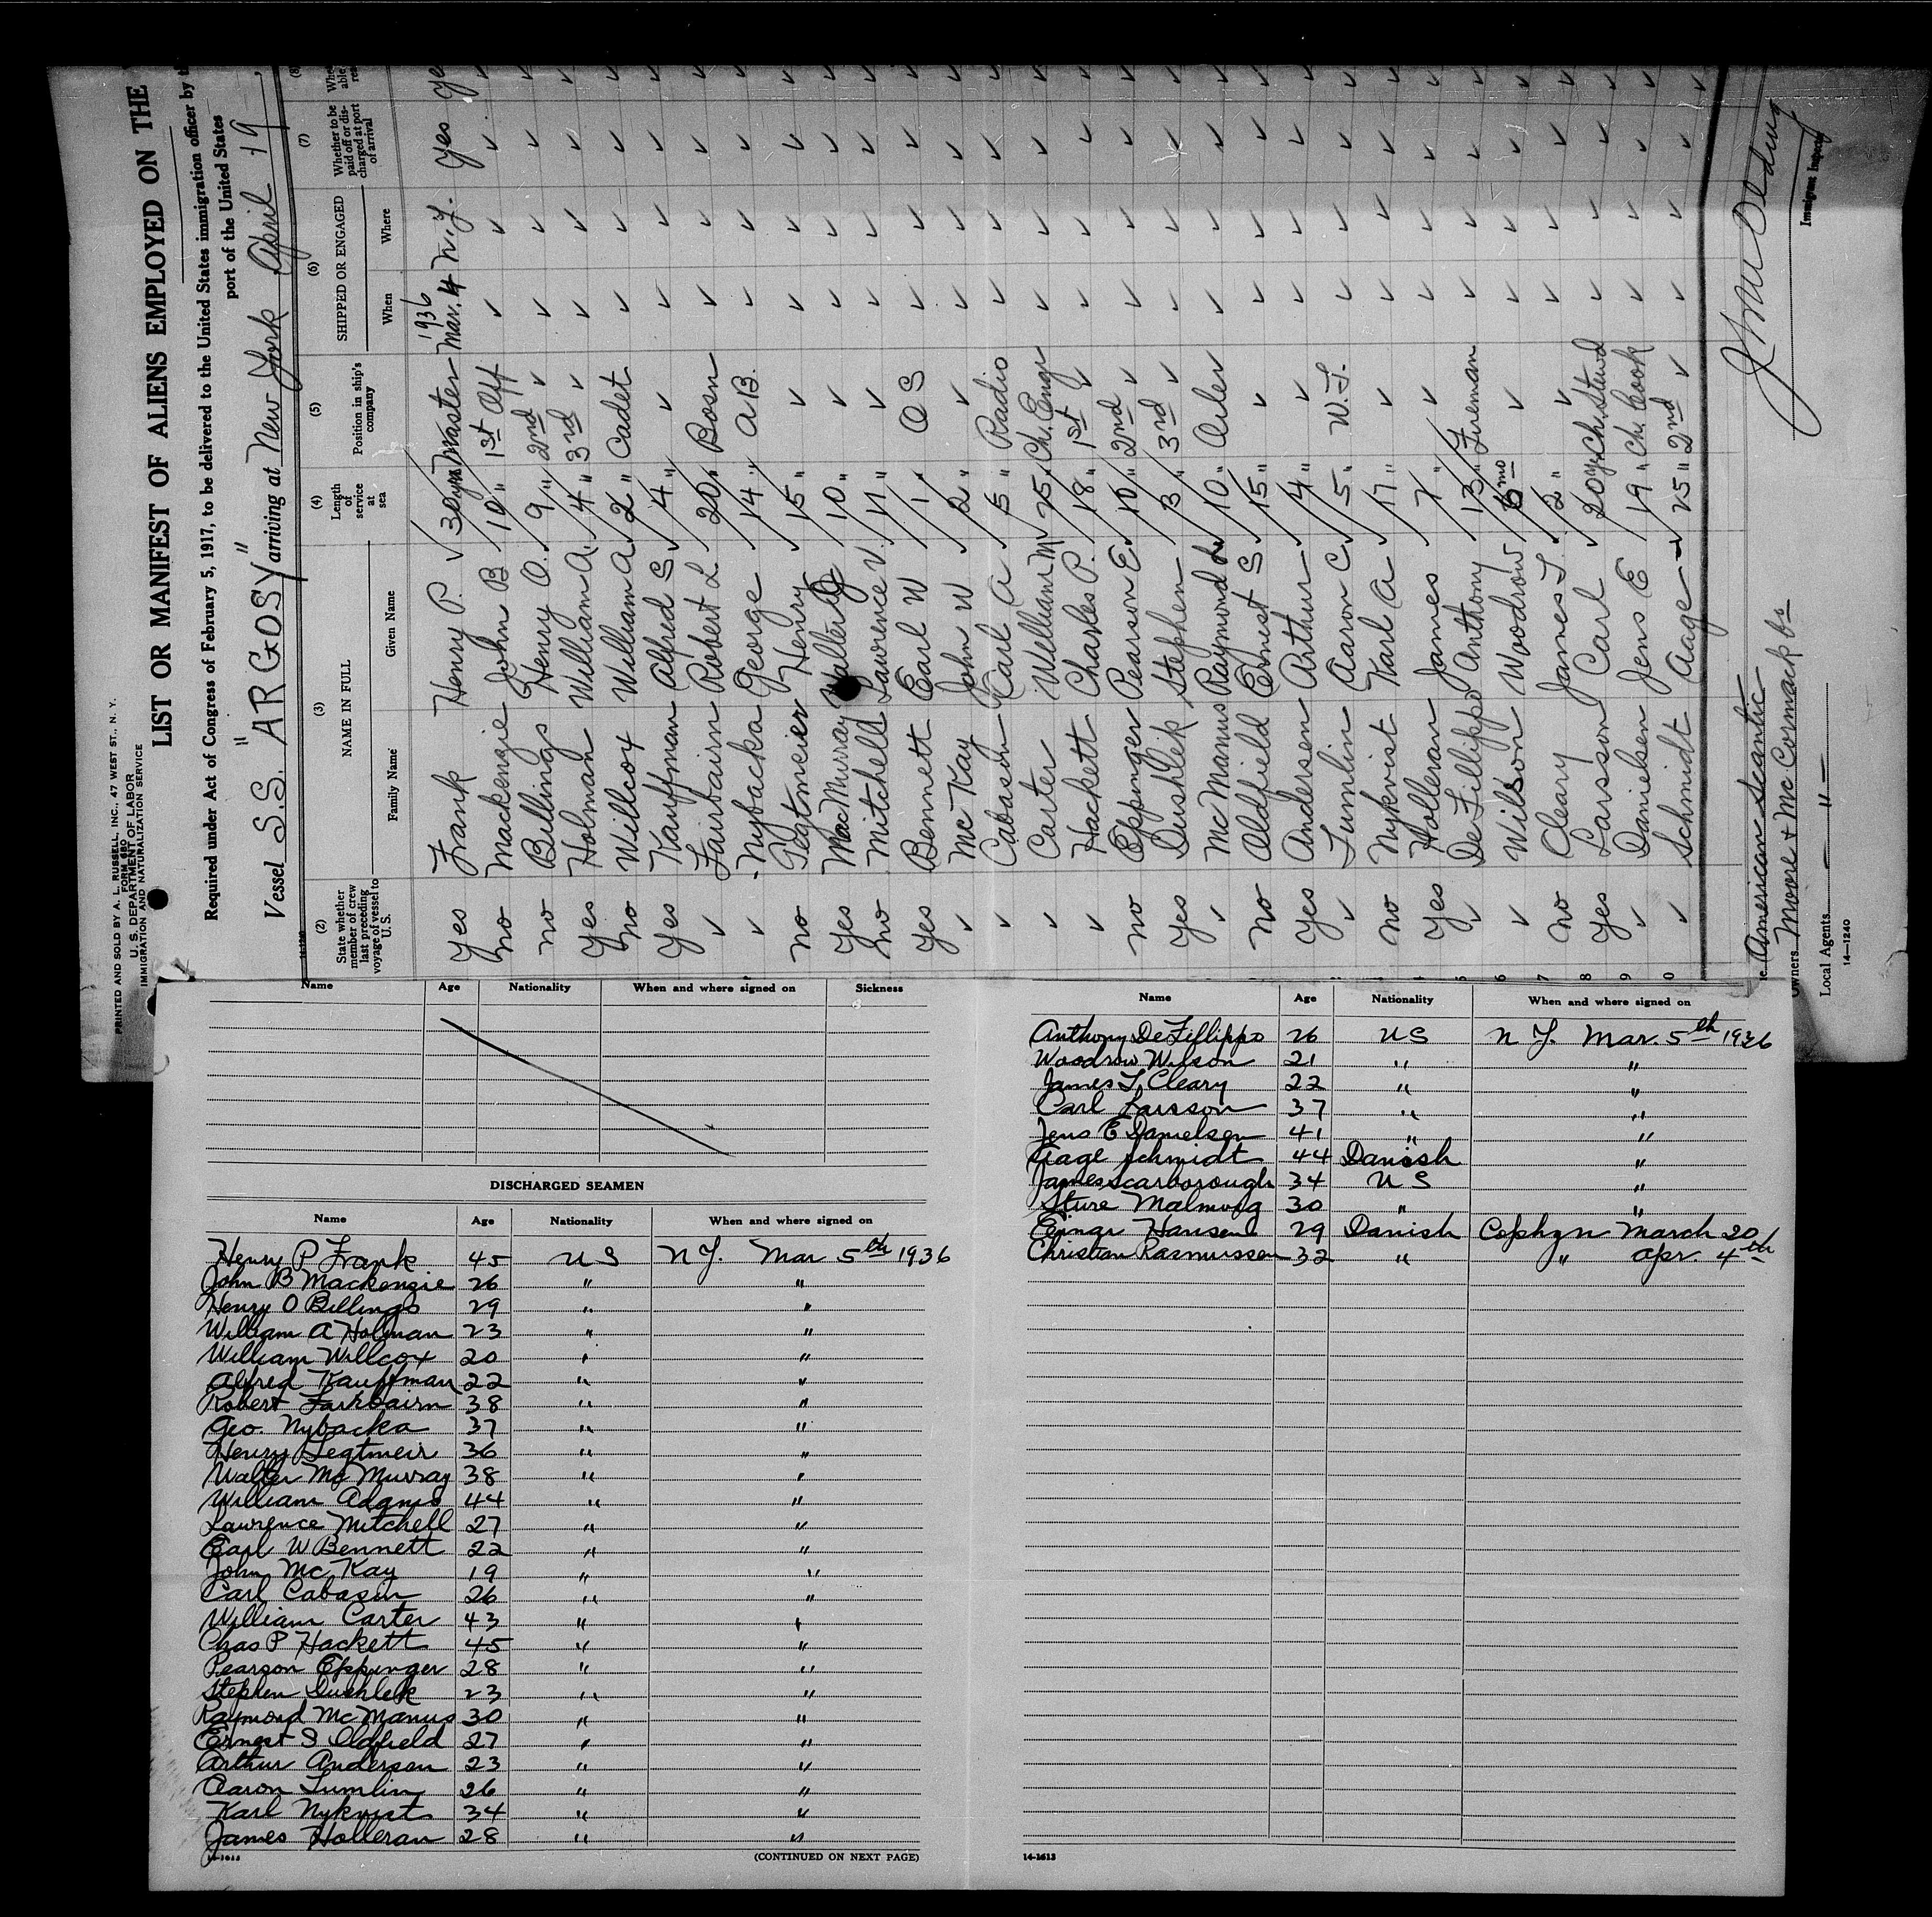 PRINTED AND SOLD BY A. L. RUSSELL, INC., 47 WEST ST., N. Y.
FORM 680
U. S. DEPARTMENT OF LABOR
IMMIGRATION AND NATURALIZATION SERVICE
LIST OR MANIFEST OF ALIENS EMPLOYED ON THE
Required under Act of Congress of February 5, 1917, to be delivered to the United States immigration officer by
port of the United States
Vessel S.S. "ARGOSY" arriving at New York April 19
(2) (3) (4) (5) (6) (7) (8)
State whether member of crew last preceding voyage of vessel to U.S. NAME IN FULL Family Name Given Name Length of service at sea Position in ship's company SHIPPED OR ENGAGED When Where Whether to be paid off or discharged at port of arrival
Yes Frank Henry P. ✓ 30 yrs Master 1936 Mar. 4 N.Y. Yes Ye
no Mackenzie John B 10 " 1st Off ✓ ✓ ✓ ✓
no Billings Henry O. 9 " 2nd ✓ ✓ ✓ ✓ ✓
Yes Holman William A. 4 " 3rd ✓ ✓ ✓ ✓ ✓
no Willcox William A 2 " Cadet ✓ ✓ ✓ ✓
Yes Kauffman Alfred S. 4 " ✓ ✓ ✓ ✓ ✓
✓ Fairbairn Robert L. 20 " Bosn ✓ ✓ ✓ ✓
✓ Nybacka George 14 " A B. ✓ ✓ ✓ ✓
no Tegtmeier Henry 15 " ✓ ✓ ✓ ✓ ✓
Yes MacMurray Walter 10 " ✓ ✓ ✓ ✓ ✓
no Mitchell Lawrence V. 11 " ✓ ✓ ✓ ✓ ✓
Yes Bennett Earl W 1 " O S ✓ ✓ ✓ ✓
✓ Mc Kay John W 2 " ✓ ✓ ✓ ✓ ✓
✓ Cabasin Carl A 5 " Radio ✓ ✓ ✓ ✓
✓ Carter William M 25 " Ch. Engr ✓ ✓ ✓ ✓
✓ Hackett Charles P. 18 " 1st ✓ ✓ ✓ ✓ ✓
no Eppinger Pearson E 10 " 2nd ✓ ✓ ✓ ✓ ✓
Yes Dushlek Stephen 3 " 3rd ✓ ✓ ✓ ✓ ✓
✓ Mc Manus Raymond L. 10 " Oiler ✓ ✓ ✓ ✓
no Oldfield Ernest S 15 " ✓ ✓ ✓ ✓ ✓
Yes Andersen Arthur 4 " ✓ ✓ ✓ ✓ ✓
✓ Tumlin Aaron C. 5 " W.T. ✓ ✓ ✓ ✓
no Nykvist Karl A 17 " ✓ ✓ ✓ ✓ ✓
Yes Holleran James 7 " ✓ ✓ ✓ ✓ ✓
✓ De Fillippo Anthony 13 " Fireman ✓ ✓ ✓ ✓
✓ Wilson Woodrow 6 mo ✓ ✓ ✓ ✓ ✓
no Cleary James T. 2 " ✓ ✓ ✓ ✓ ✓
Yes Larsson Carl 20 yrs Ch. Stewd ✓ ✓ ✓ ✓
✓ Danielsen Jens E 19 " Ch. Cook ✓ ✓ ✓ ✓
✓ Schmidt Aage 25 " 2nd ✓ ✓ ✓ ✓ ✓
American Scantic
Owners Moore & McCormack Co
Local Agents "
14-1240
Immigrant Inspector
Name Age Nationality When and where signed on Sickness
DISCHARGED SEAMEN
Name Age Nationality When and where signed on
Henry P Frank 45 US N Y. Mar 5th 1936
John B Mackenzie 26 " "
Henry O Billings 29 " "
William A Holman 23 " "
William Willcox 20 " "
Alfred Kauffman 22 " "
Robert Fairbairn 38 " "
Geo. Nybacka 37 " "
Henry Tegtmeir 36 " "
Walter Mc Murray 38 " "
William Adams 44 " "
Lawrence Mitchell 27 " "
Earl W Bennett 22 " "
John Mc Kay 19 " "
Carl Cabasin 26 " "
William Carter 43 " "
Chas P Hackett 45 " "
Pearson Eppinger 28 " "
Stephen Dushlek 23 " "
Raymond McManus 30 " "
Ernest S Oldfield 27 " "
Arthur Anderson 23 " "
Aaron Tumlin 26 " "
Karl Nykvist 34 " "
James Holleran 28 " "
14-1613
(CONTINUED ON NEXT PAGE)
Name Age Nationality When and where signed on
Anthony DeFillippo 26 US N Y. Mar. 5th 1936
Woodrow Wilson 21 " "
James T. Cleary 22 " "
Carl Larsson 37 " "
Jens E Danielsen 41 " "
Aage Schmidt 44 Danish "
James Scarborough 34 US "
Sture Malmvig 30 " "
Einar Hansen 29 Danish Cophgn March 20
Christian Rasmussen 32 " " Apr. 4th
14-1613